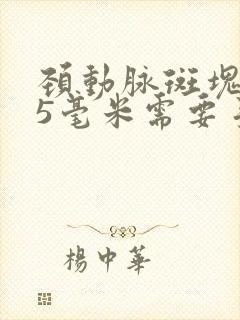 頚動脉斑塊
5毫米需要
楊中華